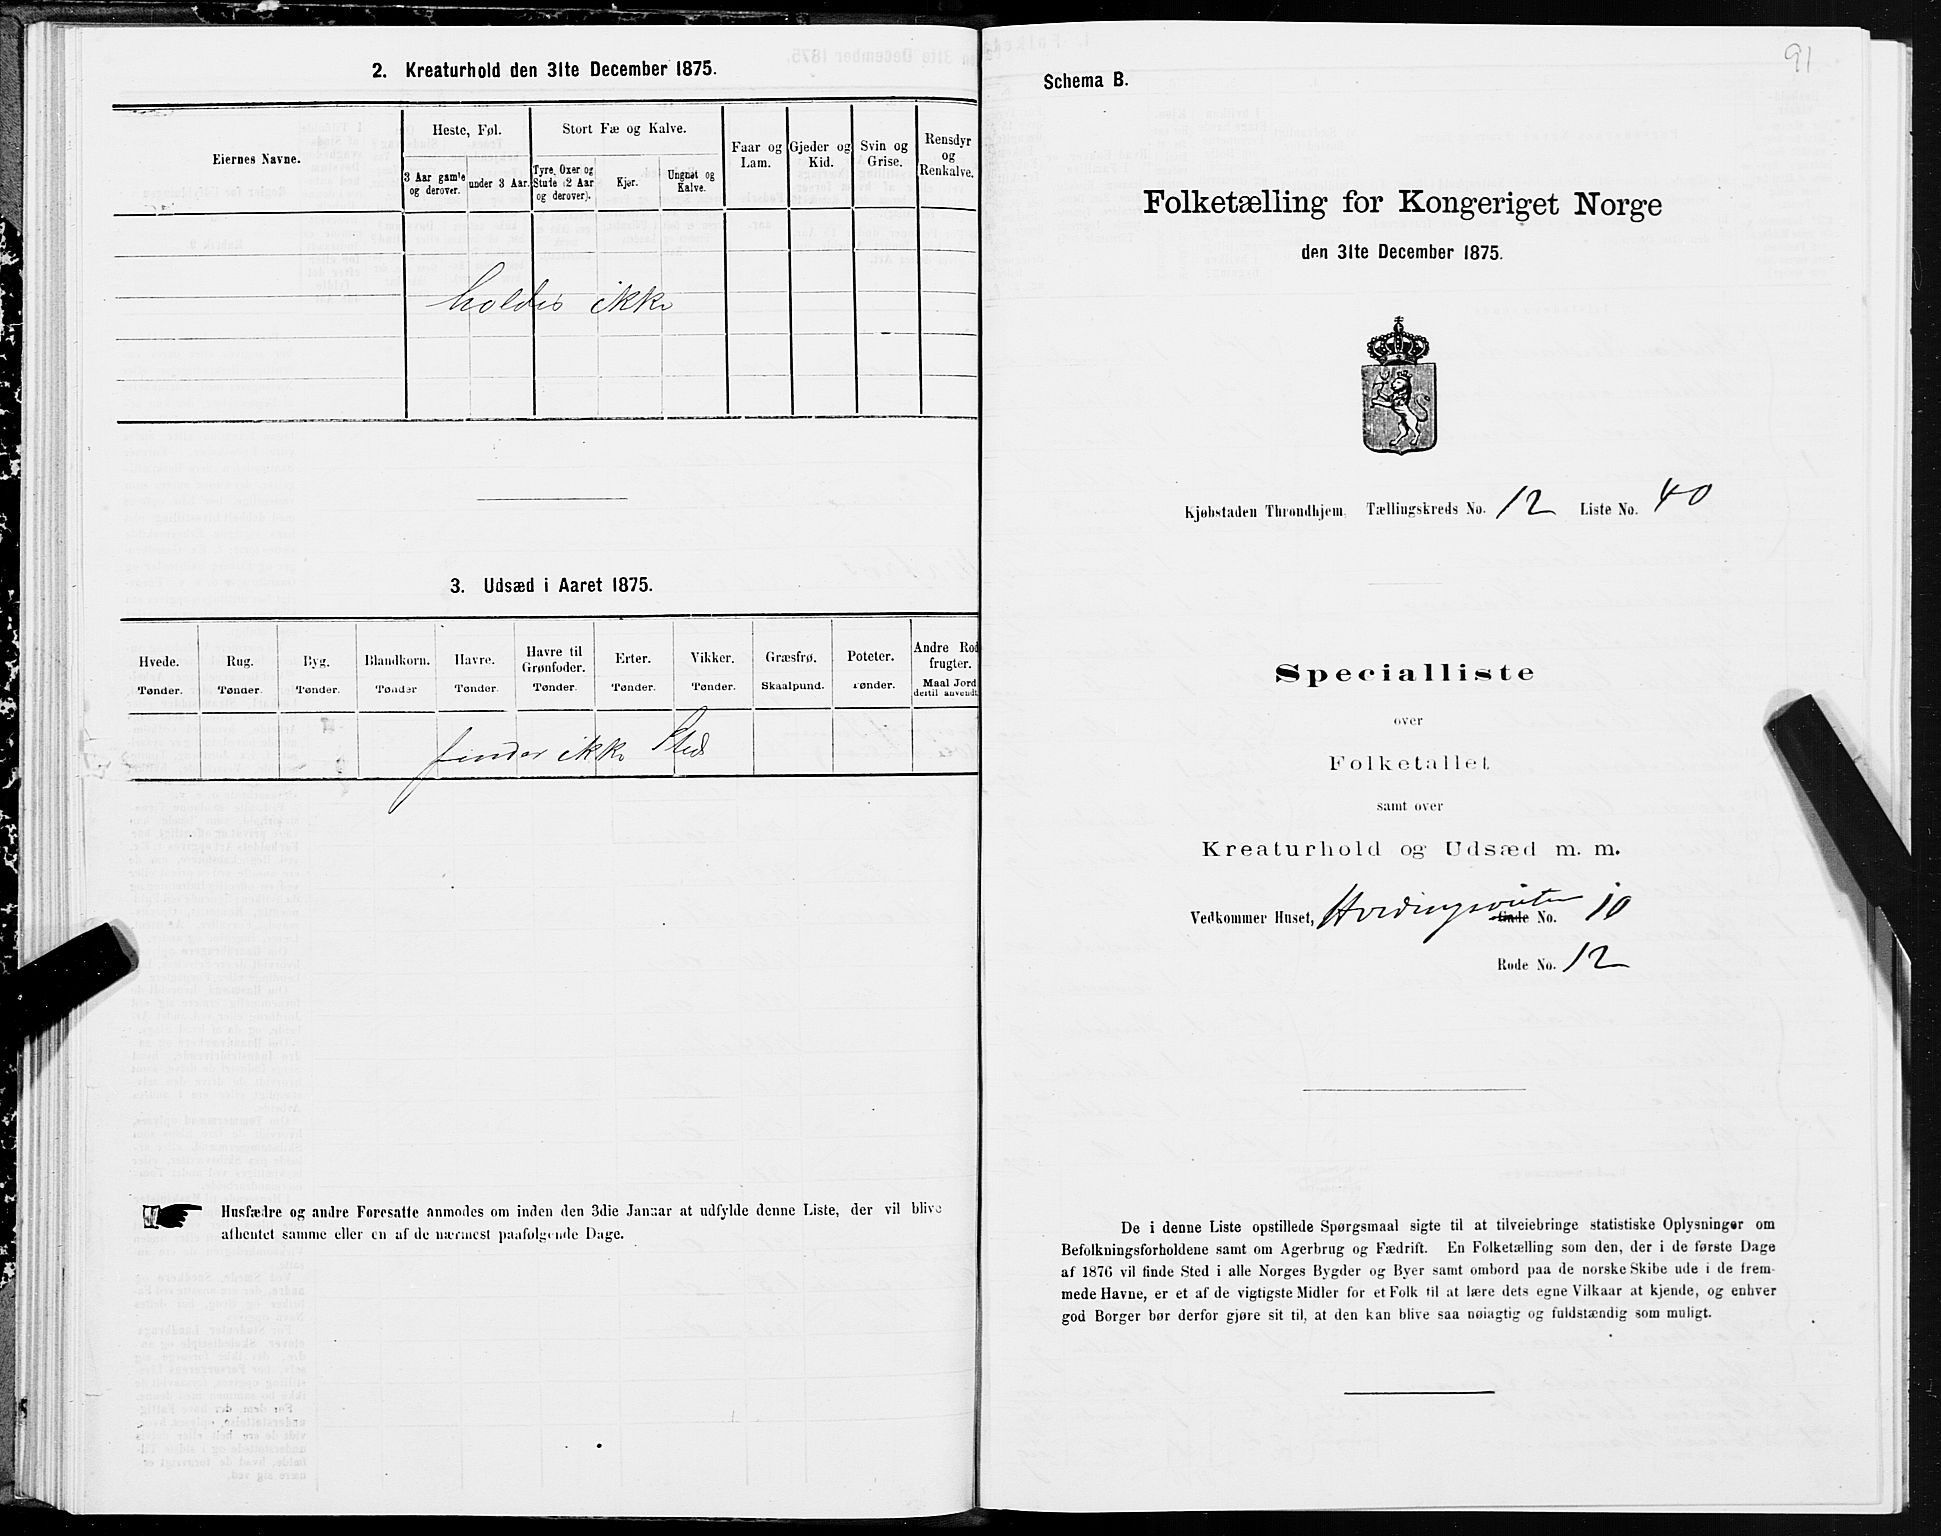 2. Kreaturhold den 31te December 1875.
Eiernes Navne.
Heste, Føl.
Stort Fæ og Kalve.
Faar og Lam.
Gjeder og Kid.
Svin og Grise.
Rensdyr og Renkalve.
3 Aar gamle og derover.
under 3 Aar.
Tyre, Oxer og Stude (2 Aar og derover).
Kjør.
Ungnøt og Kalve.
holdes ikke
3. Udsæd i Aaret 1875.
Hvede. Rug. Byg. Blandkorn. Havre. Havre til Grønfoder. Erter. Vikker. Græsfrø. Poteter. Andre Rodfrugter.
Tønder. Tønder. Tønder. Tønder Tønder. Tønder. Tønder. Tønder. Skaalpund. Tønder. Maal Jord dertil anvendt.
finder ikke Sted
Husfædre og andre Foresatte anmodes om inden den 3die Januar at udfylde denne Liste, der vil blive
afhentet samme eller en af de nærmest paafølgende Dage.
91
Schema B.
Folketælling for Kongeriget Norge
den 31te December 1875.
Kjøbstaden Throndhjem. Tællingskreds No. 12 Liste No. 40
Specialliste
over
Folketallet
samt over
Kreaturhold og Udsæd m. m.
Vedkommer Huset, Gade No. 10
Rode No. 12
De i denne Liste opstillede Spørgsmaal sigte til at tilveiebringe statistiske Oplysninger om
Befolkningsforholdene samt om Agerbrug og Fædrift. En Folketælling som den, der i de første Dage
af 1876 vil finde Sted i alle Norges Bygder og Byer samt ombord paa de norske Skibe ude i de frem-
mede Havne, er et af de vigtigste Midler for et Folk til at lære dets egne Vilkaar at kjende, og enhver
god Borger bør derfor gjøre sit til, at den kan blive saa nøiagtig og fuldstændig som muligt.